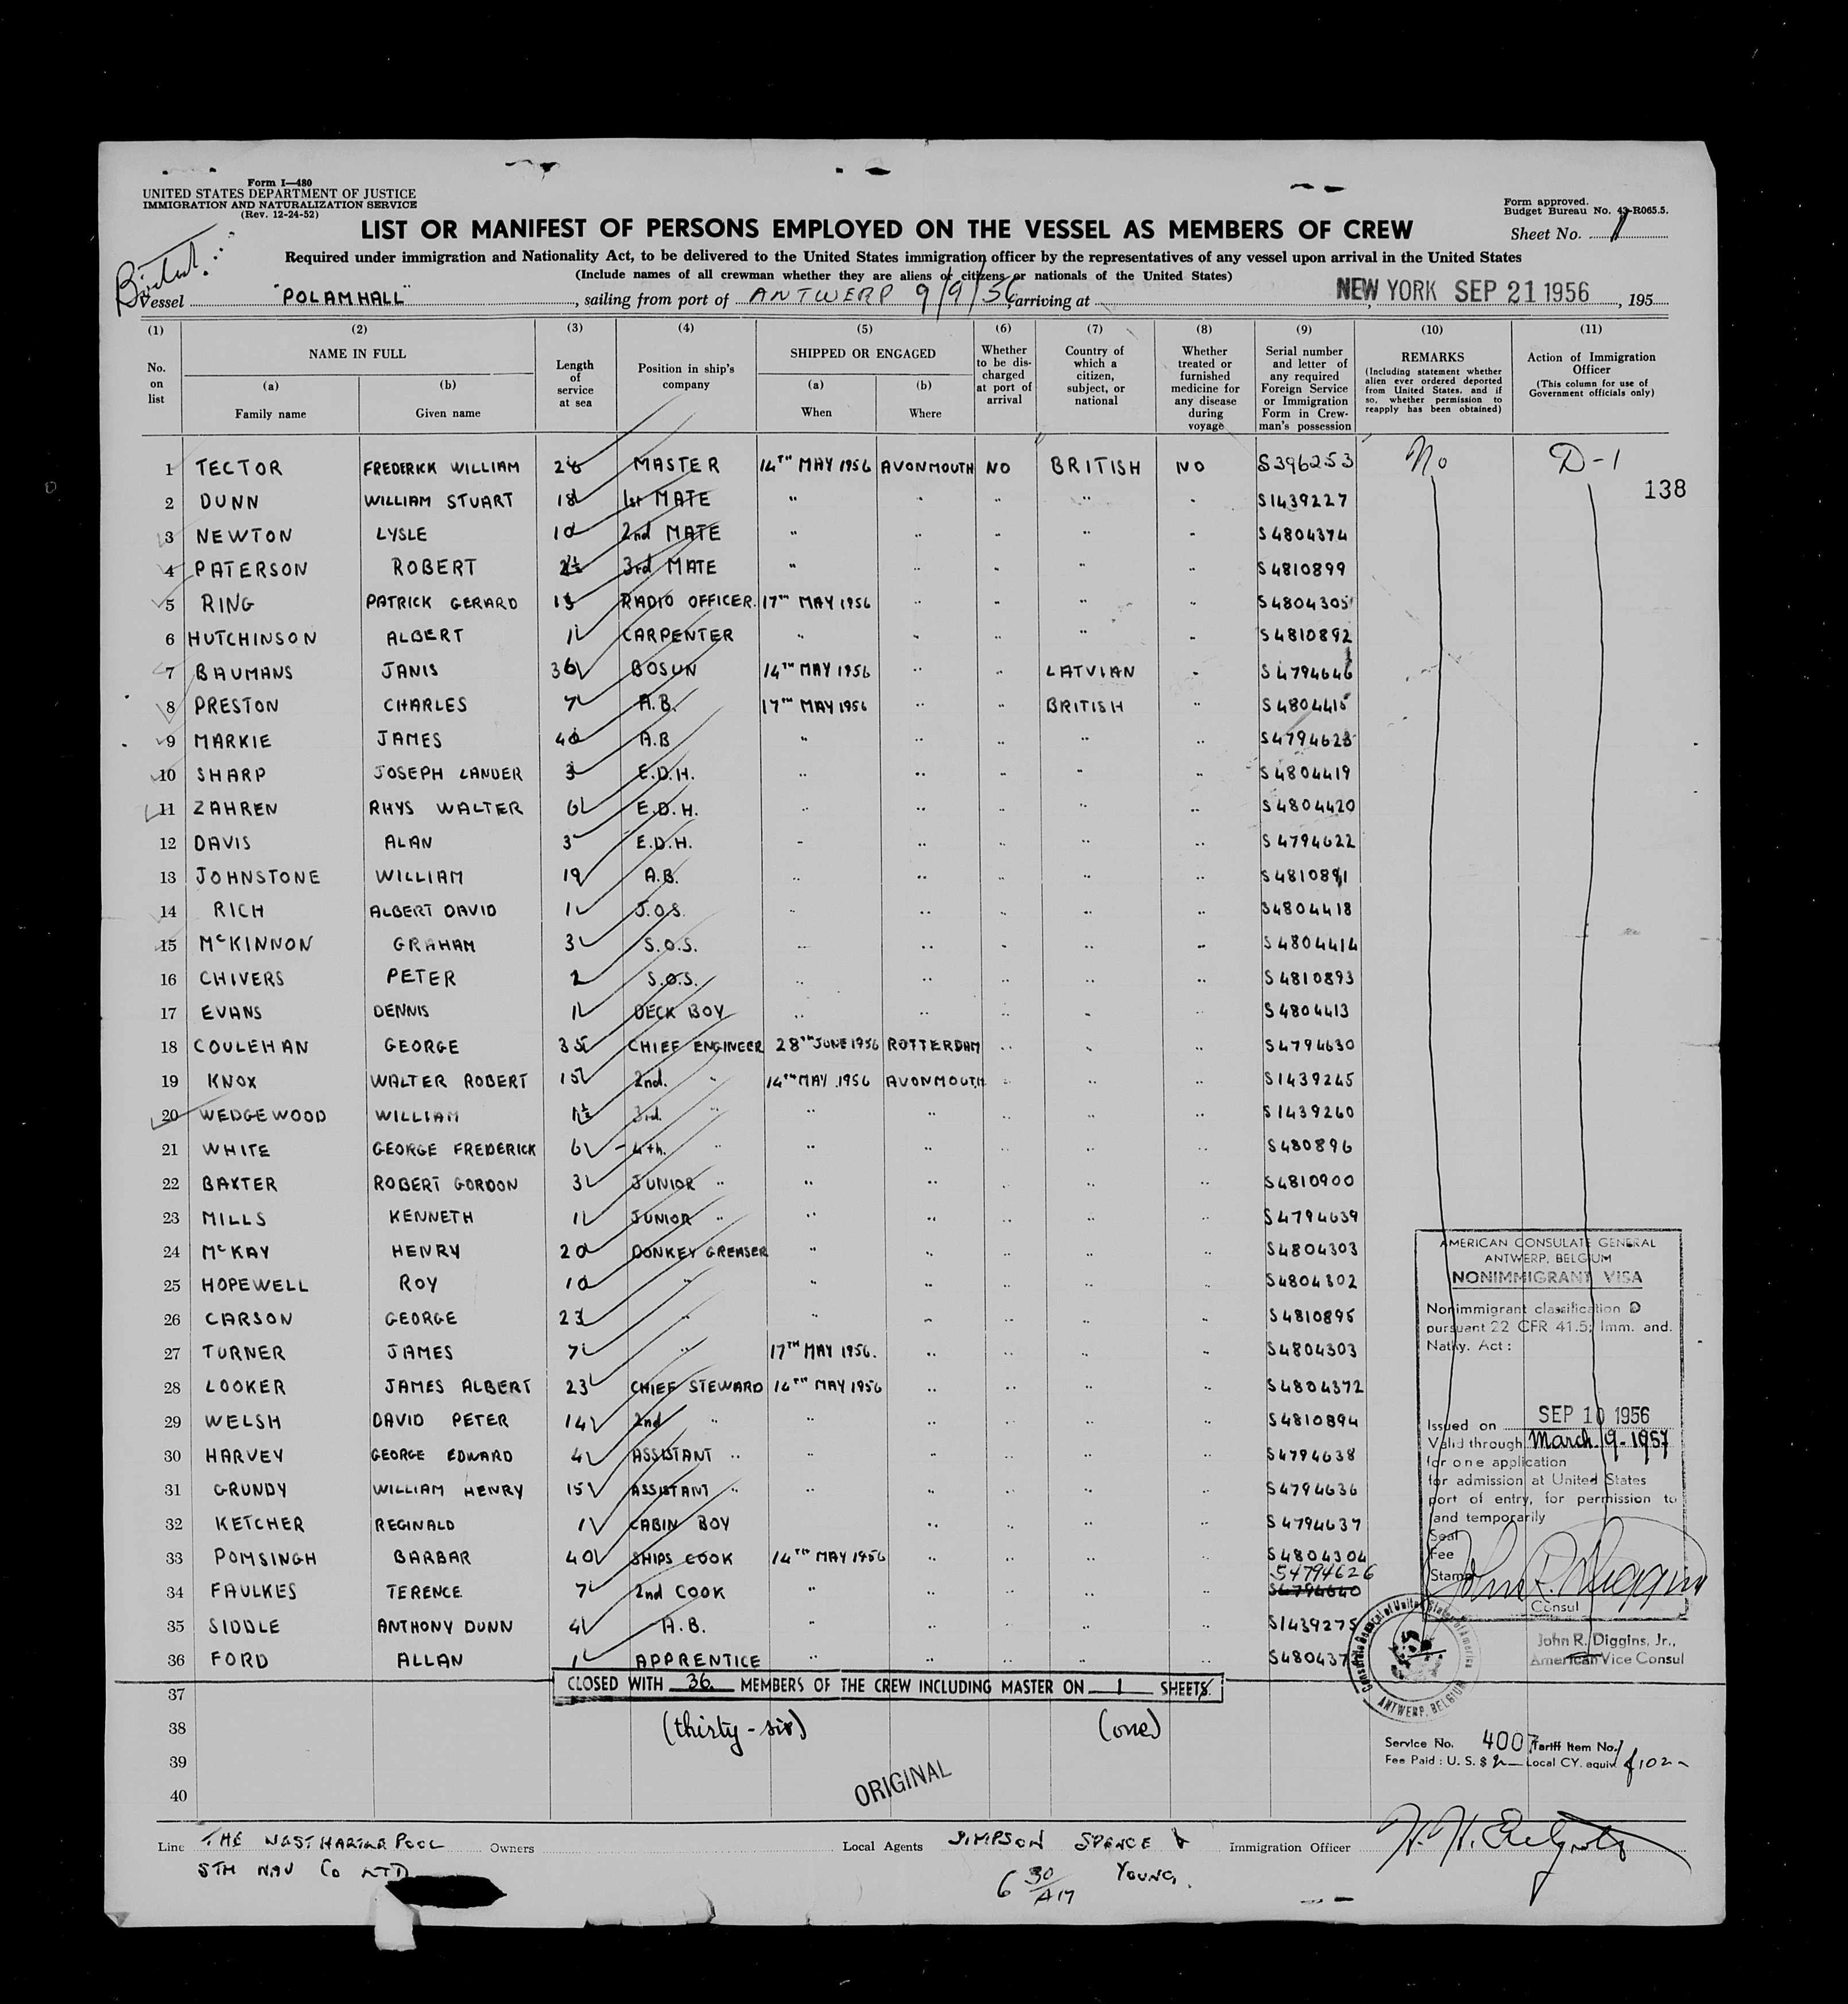 Form I—480
UNITED STATES DEPARTMENT OF JUSTICE
IMMIGRATION AND NATURALIZATION SERVICE
(Rev. 12-24-52)
Form approved.
Budget Bureau No. 43-R065.5.
LIST OR MANIFEST OF PERSONS EMPLOYED ON THE VESSEL AS MEMBERS OF CREW
Sheet No. 1
Required under immigration and Nationality Act, to be delivered to the United States immigration officer by the representatives of any vessel upon arrival in the United States
(Include names of all crewman whether they are aliens or citizens or nationals of the United States)
Vessel "POLAMHALL", sailing from port of ANTWERP 9/9/56, arriving at NEW YORK SEP 21 1956, 195
(1) (2) (3) (4) (5) (6) (7) (8) (9) (10) (11)
No. on list
NAME IN FULL
(a) Family name
(b) Given name
Length of service at sea
Position in ship's company
SHIPPED OR ENGAGED
(a) When
(b) Where
Whether to be discharged at port of arrival
Country of which a citizen, subject, or national
Whether treated or furnished medicine for any disease during voyage
Serial number and letter of any required Foreign Service or Immigration Form in Crewman's possession
REMARKS
(Including statement whether alien ever ordered deported from United States, and if so, whether permission to reapply has been obtained)
Action of Immigration Officer
(This column for use of Government officials only)
1 TECTOR FREDERICK WILLIAM MASTER 14TH MAY 1956 AVONMOUTH NO BRITISH NO S396253 No D-1
138
2 DUNN WILLIAM STUART 18 1st MATE " " " " " S1439227
3 NEWTON LYSLE 10 2nd MATE " " " " " S4804374
4 PATERSON ROBERT 2½ 3rd MATE " " " " " S4810899
5 RING PATRICK GERARD RADIO OFFICER. 17TH MAY 1956 " " " " S4804305
6 HUTCHINSON ALBERT 1 CARPENTER " " " " " S4810892
7 BAUMANS JANIS 36 BOSUN 14TH MAY 1956 " " LATVIAN " S4794646
8 PRESTON CHARLES 7 A.B. 17TH MAY 1956 " " BRITISH " S4804415
9 MARKIE JAMES 40 A.B " " " " " S4794623
10 SHARP JOSEPH LANDER 3 E.D.H. " " " " " S4804419
11 ZAHREN RHYS WALTER 6 E.D.H. " " " " " S4804420
12 DAVIS ALAN 3 E.D.H. " " " " " S4794622
13 JOHNSTONE WILLIAM 19 A.B. " " " " " S4810891
14 RICH ALBERT DAVID 1 J.O.S. " " " " " S4804418
15 McKINNON GRAHAM 3 S.O.S. " " " " " S4804414
16 CHIVERS PETER 2 S.O.S. " " " " " S4810893
17 EVANS DENNIS 1 DECK BOY " " " " " S4804413
18 COULEHAN GEORGE 35 CHIEF ENGINEER 28TH JUNE 1956 ROTTERDAM " " " S4794630
19 KNOX WALTER ROBERT 15 2nd. " 14TH MAY 1956 AVONMOUTH " " " S1439245
20 WEDGEWOOD WILLIAM 1½ 3rd. " " " " " " S1439260
21 WHITE GEORGE FREDERICK 6 4th. " " " " " " S480896
22 BAXTER ROBERT GORDON 3 JUNIOR " " " " " " S4810900
23 MILLS KENNETH 1 JUNIOR " " " " " " S4794639
24 McKAY HENRY 20 DONKEY GREASER " " " " " S4804303
25 HOPEWELL ROY 10 " " " " " " S4804302
26 CARSON GEORGE 23 " " " " " " S4810895
27 TURNER JAMES 7 " 17TH MAY 1956. " " " " S4804303
28 LOOKER JAMES ALBERT 23 CHIEF STEWARD 14TH MAY 1956 " " " " S4804372
29 WELSH DAVID PETER 14 2nd " " " " " " S4810894
30 HARVEY GEORGE EDWARD 4 ASSISTANT " " " " " " S4794638
31 GRUNDY WILLIAM HENRY 15 ASSISTANT " " " " " " S4794636
32 KETCHER REGINALD 1 CABIN BOY " " " " S4794637
33 POMSINGH BARBAR 40 SHIPS COOK 14TH MAY 1956 " " " " S4804304
S4794626
34 FAULKES TERENCE 7 2nd COOK " " " " " S4794640
35 SIDDLE ANTHONY DUNN 4 A.B. " " " " " S1439275
36 FORD ALLAN 1 APPRENTICE " " " " " S480437
CLOSED WITH 36 MEMBERS OF THE CREW INCLUDING MASTER ON 1 SHEETS.
37
38 (thirty-six) (one)
39
40
ORIGINAL
AMERICAN CONSULATE GENERAL
ANTWERP, BELGIUM
NONIMMIGRANT VISA
Nonimmigrant classification D
pursuant 22 CFR 41.5; Imm. and.
Natly. Act:
Issued on SEP 10 1956
Valid through March 9-1957
for one application
for admission at United States
port of entry, for permission to
land temporarily
Seal
Fee
Stamp John R. Diggins
Consul
John R. Diggins, Jr.,
American Vice Consul
Consulate General of United States of America
ANTWERP, BELGIUM
Service No. 4007 Tariff Item No. 1
Fee Paid: U. S. $ 2 Local CY. equiv. f 102-
Line THE WEST HARTLEPOOL STM NAV Co LTD Owners
Local Agents SIMPSON SPENCE & YOUNG.
Immigration Officer
6 30/AM